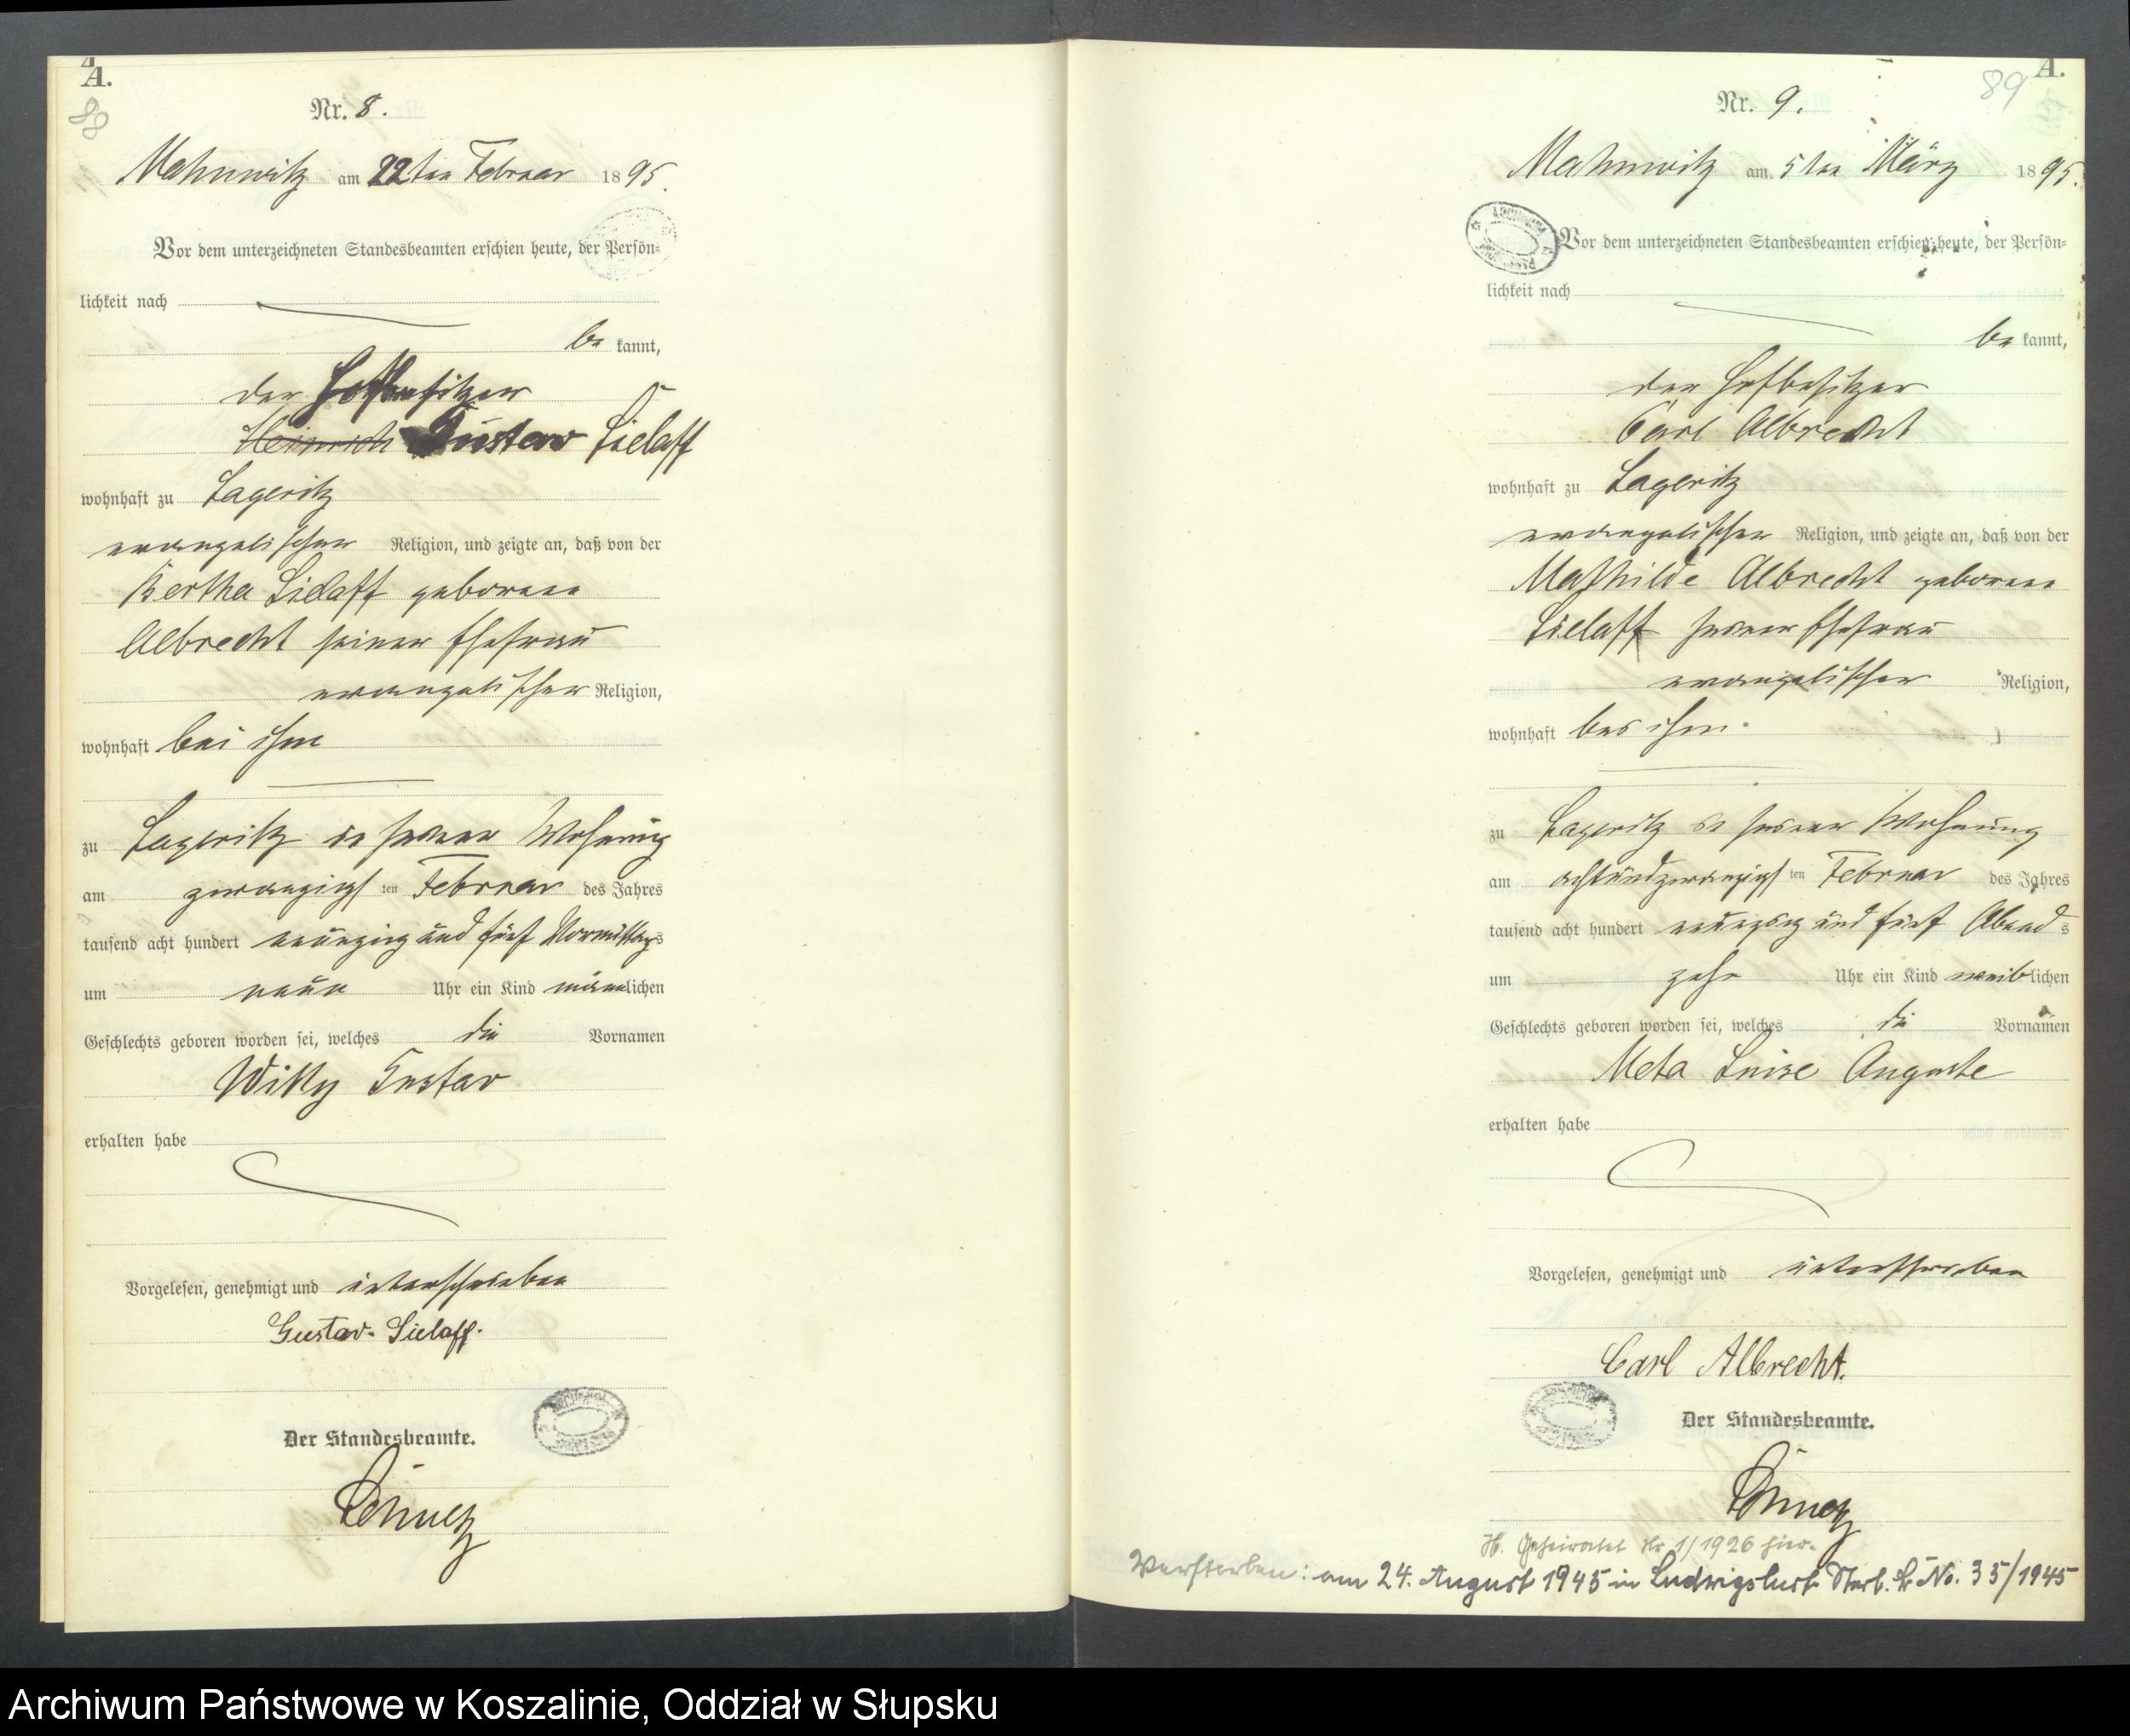 A.
88
Nr. 8.
Mahnwitz am 22ten Februar 1895.
Vor dem unterzeichneten Standesbeamten erschien heute, der Persön-
lichkeit nach
be kannt,
der Hofbesitzer
Heinrich Gustav Sielaff
wohnhaft zu Lageritz
evangelischer Religion, und zeigte an, daß von der
Bertha Sielaff geborene
Albrecht seiner Ehefrau
evangelischer Religion,
wohnhaft bei ihm
zu Lageritz in seiner Wohnung
am zwanzigsten Februar des Jahres
tausend acht hundert neunzig und fünf Vormittags
um neun Uhr ein Kind männlichen
Geschlechts geboren worden sei, welches die Vornamen
Willy Gustav
erhalten habe
Vorgelesen, genehmigt und unterschrieben
Gustav Sielaff.
Der Standesbeamte.
A.
89
Nr. 9.
Mahnwitz am 5ten März 1895.
Vor dem unterzeichneten Standesbeamten erschien heute, der Persön-
lichkeit nach
be kannt,
der Hofbesitzer
Carl Albrecht
wohnhaft zu Lageritz
evangelischer Religion, und zeigte an, daß von der
Mathilde Albrecht geborene
Sielaff seiner Ehefrau
evangelischer Religion,
wohnhaft bei ihm
zu Lageritz in seiner Wohnung
am achtundzwanzigsten Februar des Jahres
tausend acht hundert neunzig und fünf Abends
um zehn Uhr ein Kind weiblichen
Geschlechts geboren worden sei, welches die Vornamen
Meta Luise Auguste
erhalten habe
Vorgelesen, genehmigt und unterschrieben
Carl Albrecht.
Der Standesbeamte.
Geheiratet Nr 1/1926 hier.
Verstorben: am 24. August 1945 in Ludwigslust No. 35/1945
Archiwum Państwowe w Koszalinie, Oddział w Słupsku